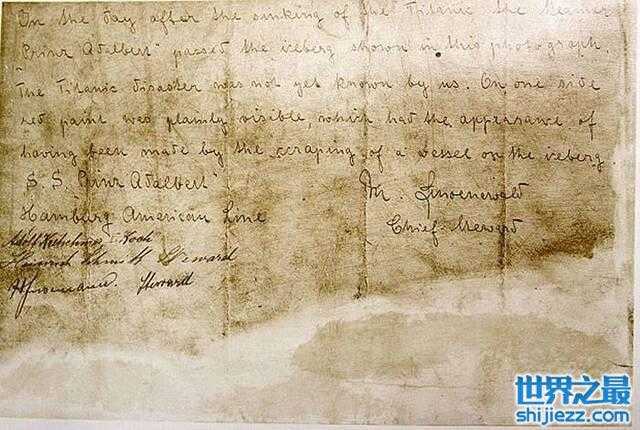 On the day after the sinking of the Titanic the steamer
"Prinz Adalbert" passed the iceberg shown in this photograph.
The Titanic disaster was not yet known by us. On one side
red paint was plainly visible, which had the appearance of
having been made by the scraping of a vessel on the iceberg.
S. S. "Prinz Adalbert"
Hamburg American Line
M. Linoenewald
Chief Steward
Koch
Steward
Steward
世界之最
shijiezz.com